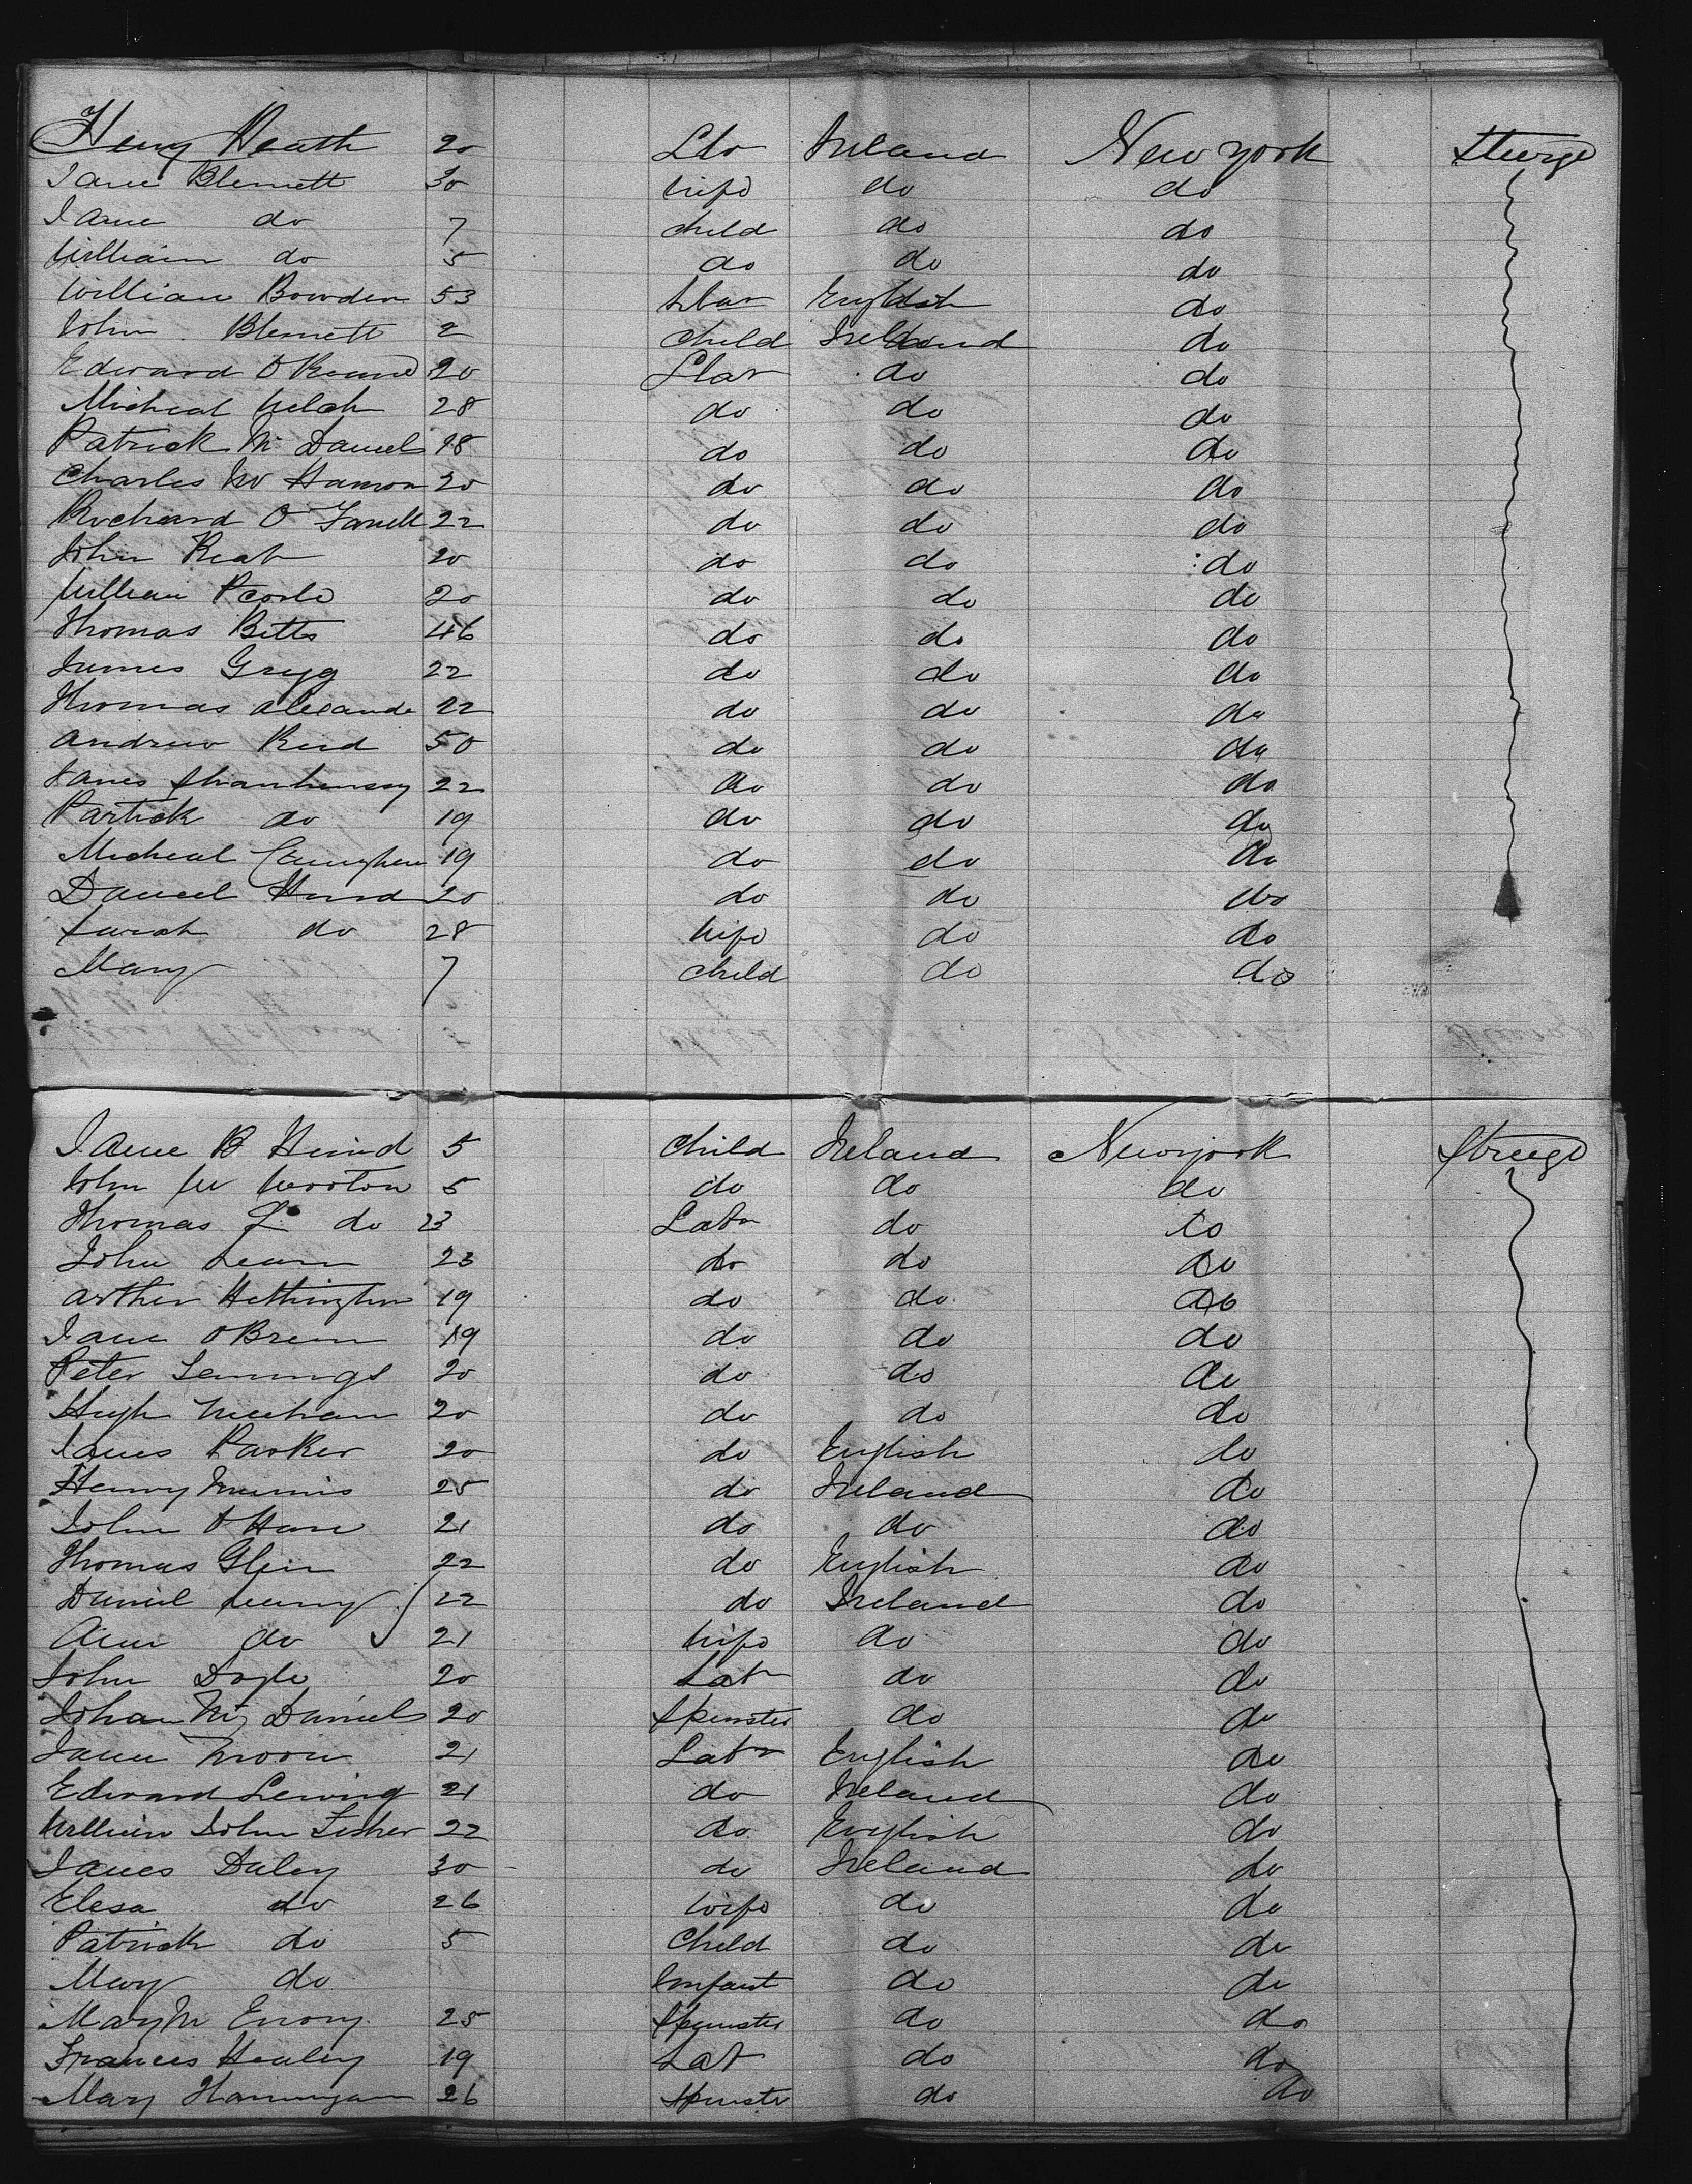 Henry Heath 20 Lbr Ireland New york Steerge
Jane Blemett 30 wife do do
Jane do 7 child do do
William do 5 do do do
William Bowden 53 Lbar English do
John Blemett 2 child Ireland do
Edward O 20 Lbar do do
Micheal Welch 28 do do do
Patrick Mc Daniel 18 do do do
Charles Mc 20 do do do
Richard O Farrell 22 do do do
John 20 do do do
William 20 do do do
Thomas Betts 46 do do do
James Gryg 22 do do do
Thomas alexande 22 do do do
Andrew Reid 50 do do do
James 22 do do do
Partick do 19 do do do
Micheal 19 do do do
Daniel 20 do do do
Sarah do 28 wife do do
Mary 7 child do do
Jane B 5 child Ireland Newyork Steerge
John W 5 do do do
Thomas do 23 Labr do do
John 23 do do do
Arther Hethington 19 do do do
Jane O Brien 19 do do do
Peter Jennings 20 do do do
Hugh Meehan 20 do do do
James Parker 20 do English do
Henry 25 do Ireland do
John O Hare 21 do do do
Thomas Glen 22 do English do
Daniel 22 do Ireland do
Ann do 21 wife do do
John Doyle 20 Lab do do
Mc Daniel 20 Spinster do do
Moore 21 Labr English do
Edward 21 do Ireland do
William John Fisher 22 do English do
James Daley 30 do Ireland do
Elesa do 26 wife do do
Patrick do 5 Child do do
Mary do Imfant do do
Mary Mc 25 Spinster do do
Frances Healey 19 Lab do do
Mary Hannigan 26 Spinster do do